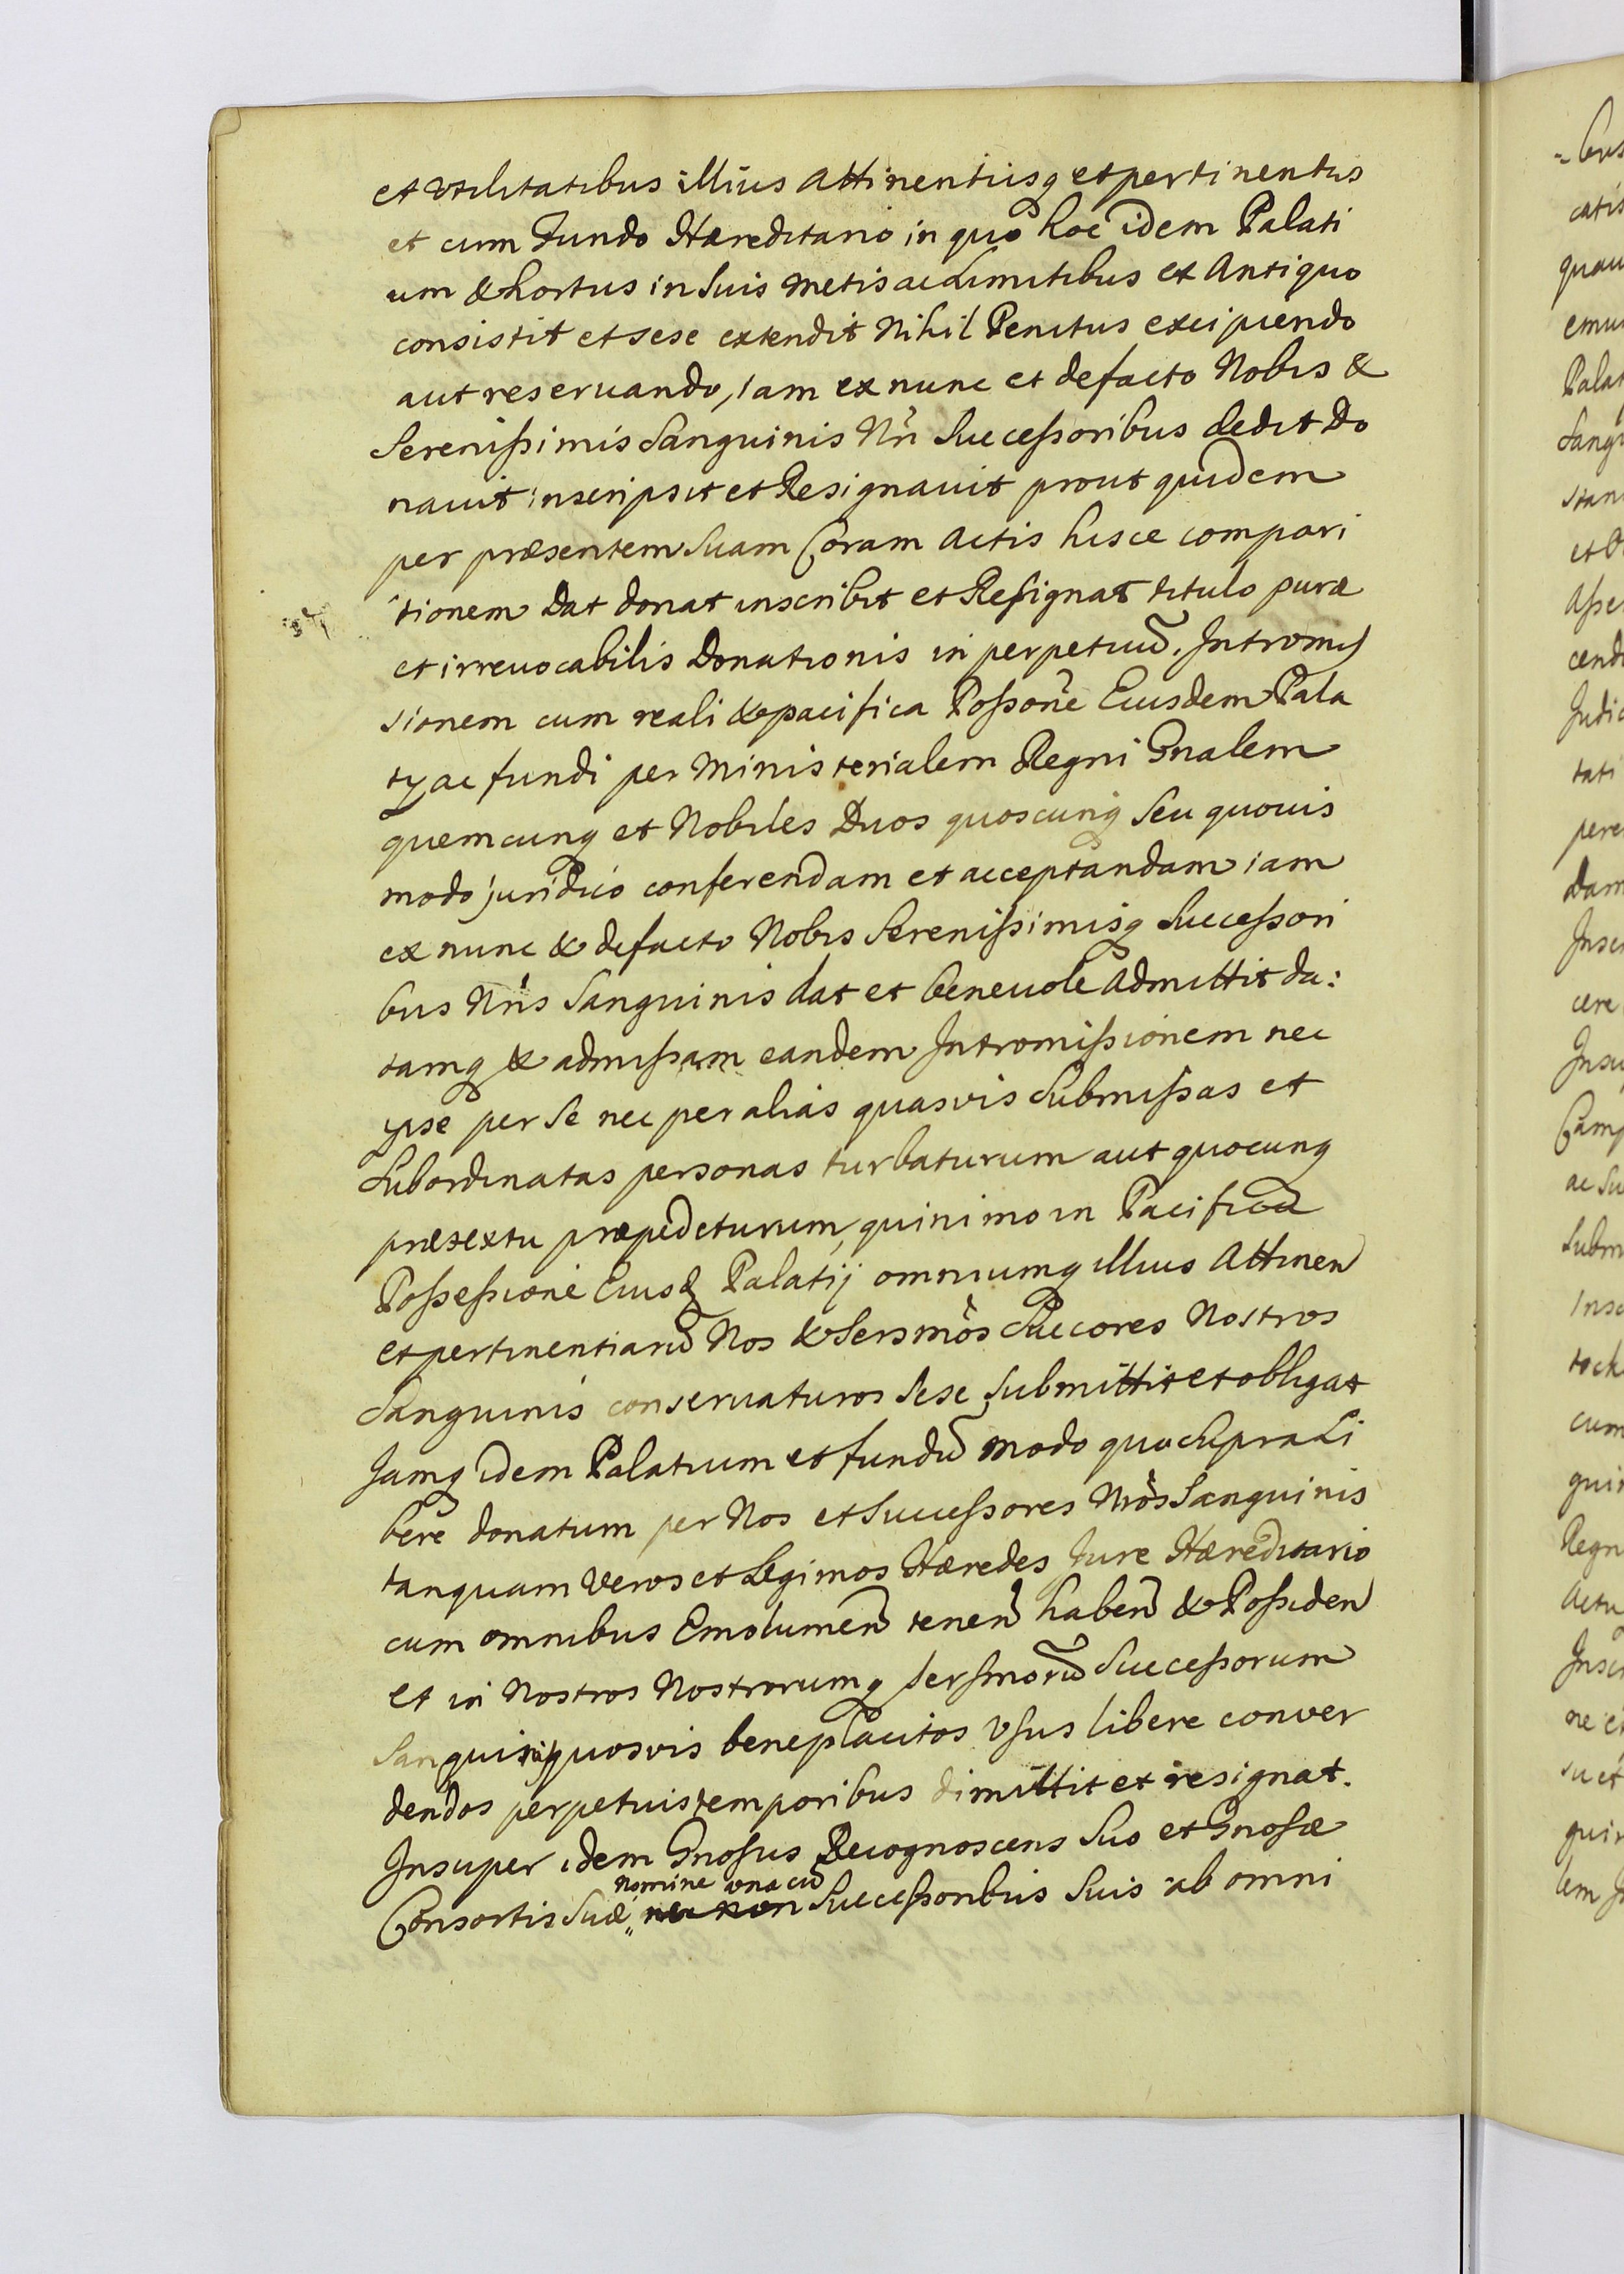 et vtilitatibus illius Attinentiisq et pertinentiis
et cum Fundo Hæreditario in quo hoc idem Palati
um & hortus in Suis metis ac Limitibus ex Antiquo
consistit et sese extendit Nihil Penitus excipiendo
aut reseruando, iam ex nunc et defacto Nobis &
Serenissimis Sanguinis Nri Successoribus dedit Do
nauit inscripsit et Resignauit prout quidem
per præsentem Suam Coram Actis hisce compari
tionem Dat donat inscribit et Resignat titulo puræ
et irreuocabilis Donationis in perpetuũ. Intromis
sionem cum reali & pacifica Posson̄e Eiusdem Pala
tij ac fundi per Ministerialem Regni Gnalem
quemcunq et Nobiles Duos quoscunq Seu quouis
modo juridico conferendam et acceptandam iam
ex nunc & defacto Nobis Serenissimisq Successori
bus Nris Sanguinis dat et beneuole Admittit da:
tamq & admissam eandem Intromissionem nec
ipse per Se nec per alias quasvis Submissas et
Subordinatas personas turbaturum aut quocunq
prætextu præpediturum, quinimo in Pacifica
Possessione Eiusd Palatij omniumq illius Attinen
et pertinentiarũ Nos & Sersmos Succores Nostros
Sanguinis conseruaturos Sese Submittit et obligat
Jamq idem Palatium et fundũ modo quo Supra Li
bere donatum per Nos et Successores Nros Sanguinis
tanquam Veros et Legimos Hæredes Jure Hæreditario
cum omnibus Emolumen tenen haben & Possiden
et in Nostros Nostrorumq Sersmorũ Successorum
Sanguinis quosvis beneplacitos Vsus libere conver
dendos perpetuis temporibus dimittit et resignat.
Insuper idem Gnosus Recognoscens Suo et Gnosæ
nomine vna cũ
Consortis Suæ nec non Successoribus Suis ab omni